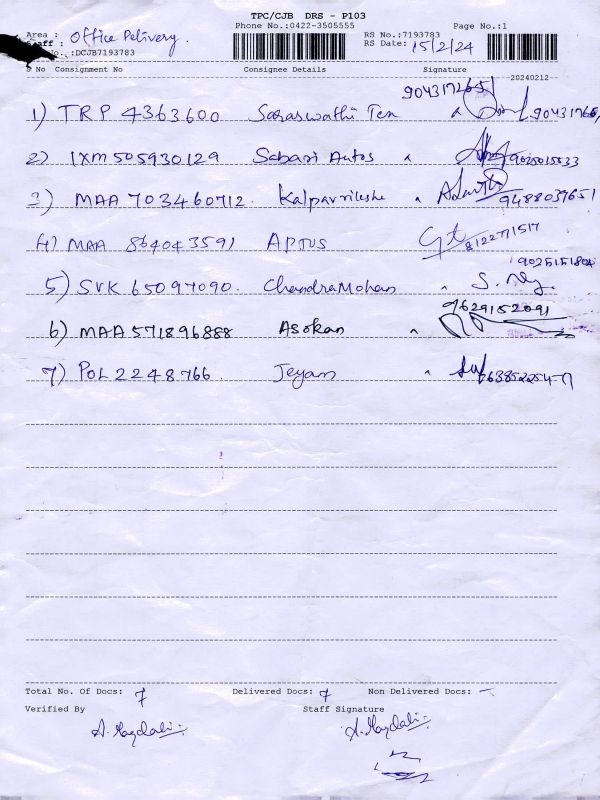 TPC/CJB DRS - P103
Phone No.:0422-3505555 Page No.:1
Area : Office Delivery.
RS No.:7193783
Staff :
RS Date: 15/2/24
No.:DCJB7193783
S No Consignment No Consignee Details Signature
20240212
1) TRP 4363600 Saraswathi Tex
2) IXM 505930129 Sabari Autos 9025015633
3) MAA 703460712. Kalpavriksha 9488039651
4) MAA 864043591 APTUS 8122771517
9025151804
5) SVK 65097090. ChandraMohan
9629152091
6) MAA 571896888 Asokan
7) POL 2248766. Jeyam
Total No. Of Docs: 7 Delivered Docs: 7 Non Delivered Docs: -
Verified By Staff Signature